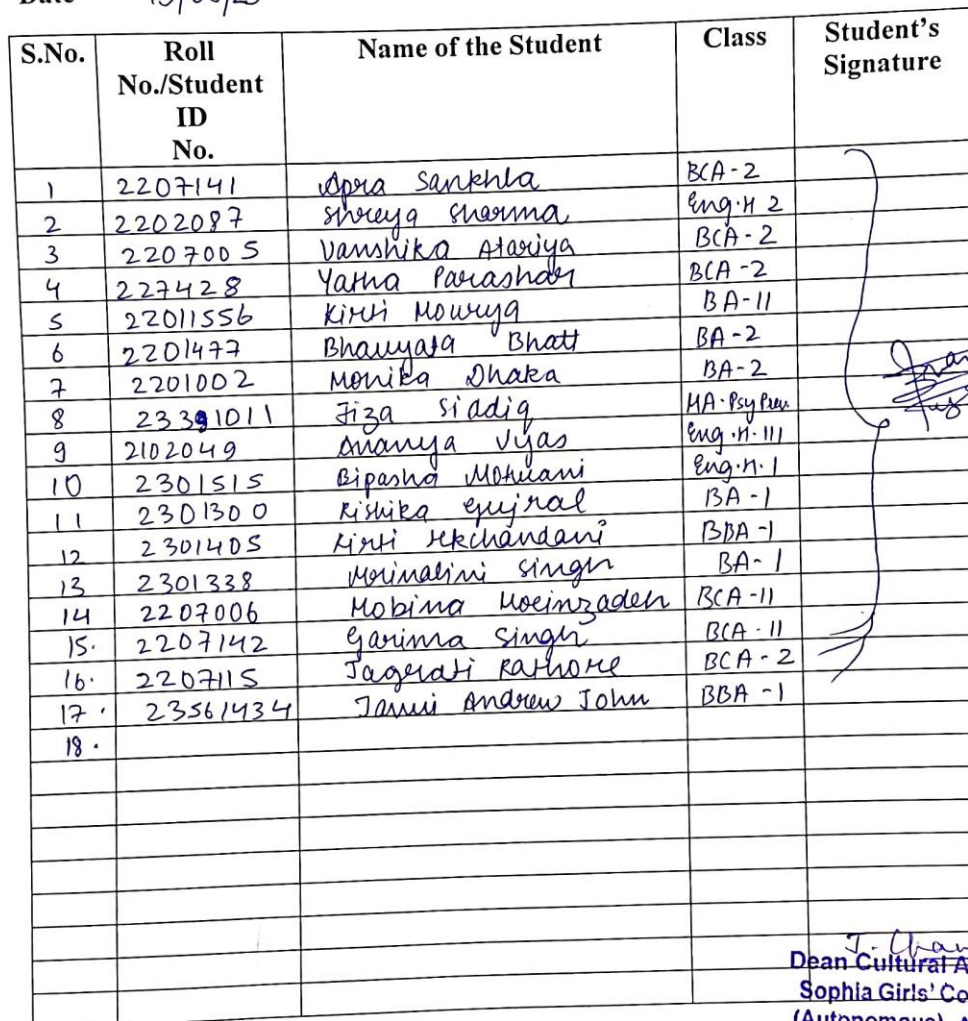 S.No. Roll No./Student ID No. Name of the Student Class Student's Signature
1 2207141 Apra Sankhla BCA-2
2 2202087 Shreya Sharma Eng.H 2
3 2207005 Vanshika Atariya BCA-2
4 227428 Yatna Parashar BCA-2
5 22011556 Kirti Mourya BA-11
6 2201477 Bhavyata Bhatt BA-2
7 2201002 Monika Dhaka BA-2
8 23391011 Fiza Siadiq MA.Psy Prev.
9 2102049 Ananya Vyas Eng.H.III
10 2301515 Bipasha Motwani Eng.H.I
11 2301300 Rishika Gujral BA-1
12 2301405 Kirti Hkchandani BBA-1
13 2301338 Mrinalini Singh BA-1
14 2207006 Mobina Moeinzadeh BCA-11
15. 2207142 Garima Singh BCA-11
16. 2207115 Jagrati Rathore BCA-2
17. 23561434 Andrew John BBA-1
18.
Dean Cultural A
Sophia Girls' Co
(Autonomous)